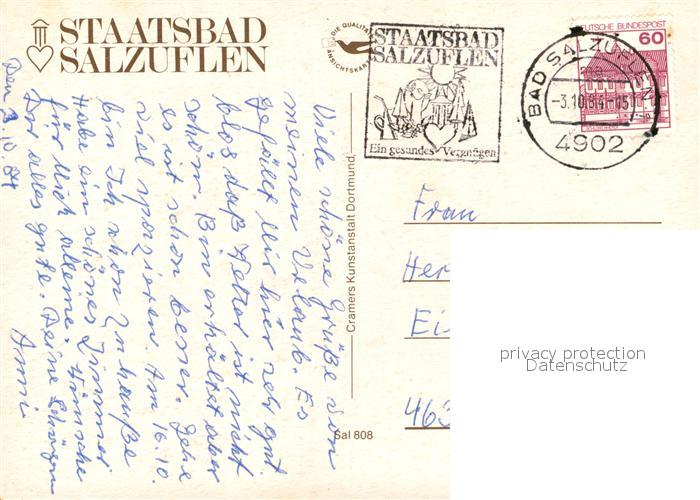 STAATSBAD
SALZUFLEN
DIE QUALITÄTS
ANSICHTSKARTE
STAATSBAD
SALZUFLEN
Ein gesundes Vergnügen
DEUTSCHE BUNDESPOST
60
BAD SALZUFLEN
-3.10.84-05
4902
Den 3.10.84
Viele schöne Grüße von
meinen Urlaub. Es
gefällt mir hier sehr gut
blos daß Wetter ist nicht
schön. Bin erkältet aber
es ist schon besser. Gehe
viel spazieren. Am 16.10.
bin Ich schon zu hauße
Habe ein schönes Zimmer
für mich alleine. Wünsche
Dir alles gute. Deine Schwägerin
Anni
Cramers Kunstanstalt Dortmund
Sal 808
Frau
Her
Ei
463
privacy protection
Datenschutz